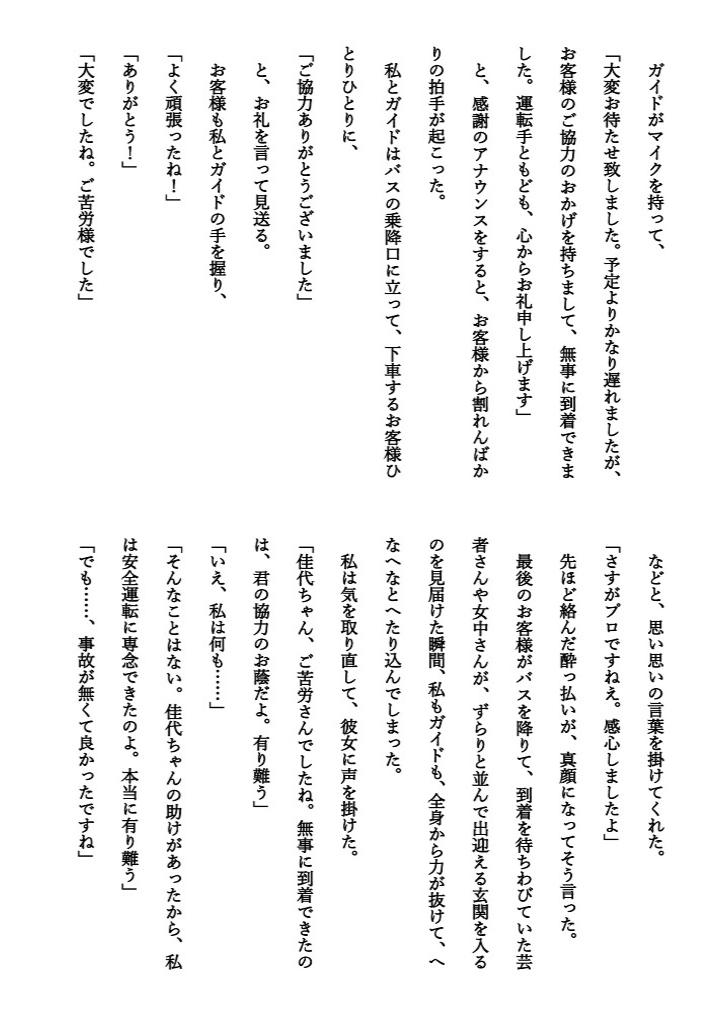 ガイドがマイクを持って、
「大変お待たせ致しました。予定よりかなり遅れましたが、
お客様のご協力のおかげを持ちまして、無事に到着できま
した。運転手ともども、心からお礼申し上げます」
　と、感謝のアナウンスをすると、お客様から割れんばか
りの拍手が起こった。
　私とガイドはバスの乗降口に立って、下車するお客様ひ
とりひとりに、
「ご協力ありがとうございました」
　と、お礼を言って見送る。
　お客様も私とガイドの手を握り、
「よく頑張ったね！」
「ありがとう！」
「大変でしたね。ご苦労様でした」
　などと、思い思いの言葉を掛けてくれた。
「さすがプロですねえ。感心しましたよ」
　先ほど絡んだ酔っ払いが、真顔になってそう言った。
　最後のお客様がバスを降りて、到着を待ちわびていた芸
者さんや女中さんが、ずらりと並んで出迎える玄関を入る
のを見届けた瞬間、私もガイドも、全身から力が抜けて、へ
なへなとへたり込んでしまった。
　私は気を取り直して、彼女に声を掛けた。
「佳代ちゃん、ご苦労さんでしたね。無事に到着できたの
は、君の協力のお蔭だよ。有り難う」
「いえ、私は何も……」
「そんなことはない。佳代ちゃんの助けがあったから、私
は安全運転に専念できたのよ。本当に有り難う」
「でも……、事故が無くて良かったですね」